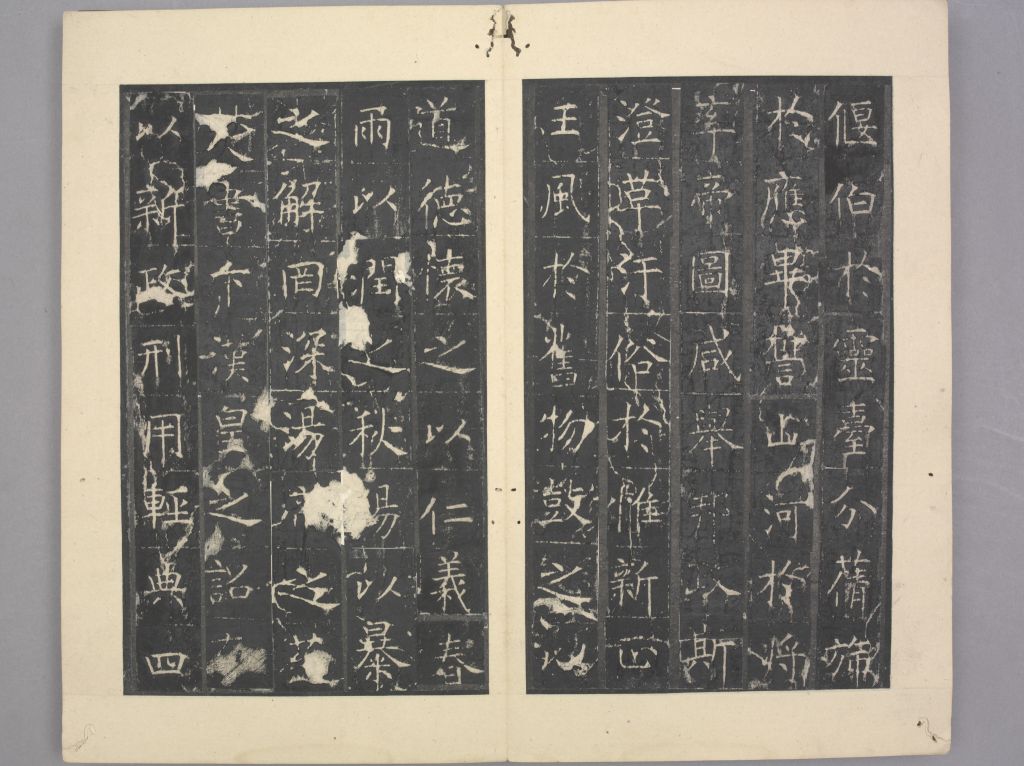 偃伯於靈臺分
於應畢誓山河於將
帝圖咸舉以斯
澄革汙俗於惟新正
王風於舊物鼓之以
道德懷之以仁義春
雨以潤之秋陽以暴
之解罔深湯之
焚書下漢皇之詔
以新政刑用輕典四